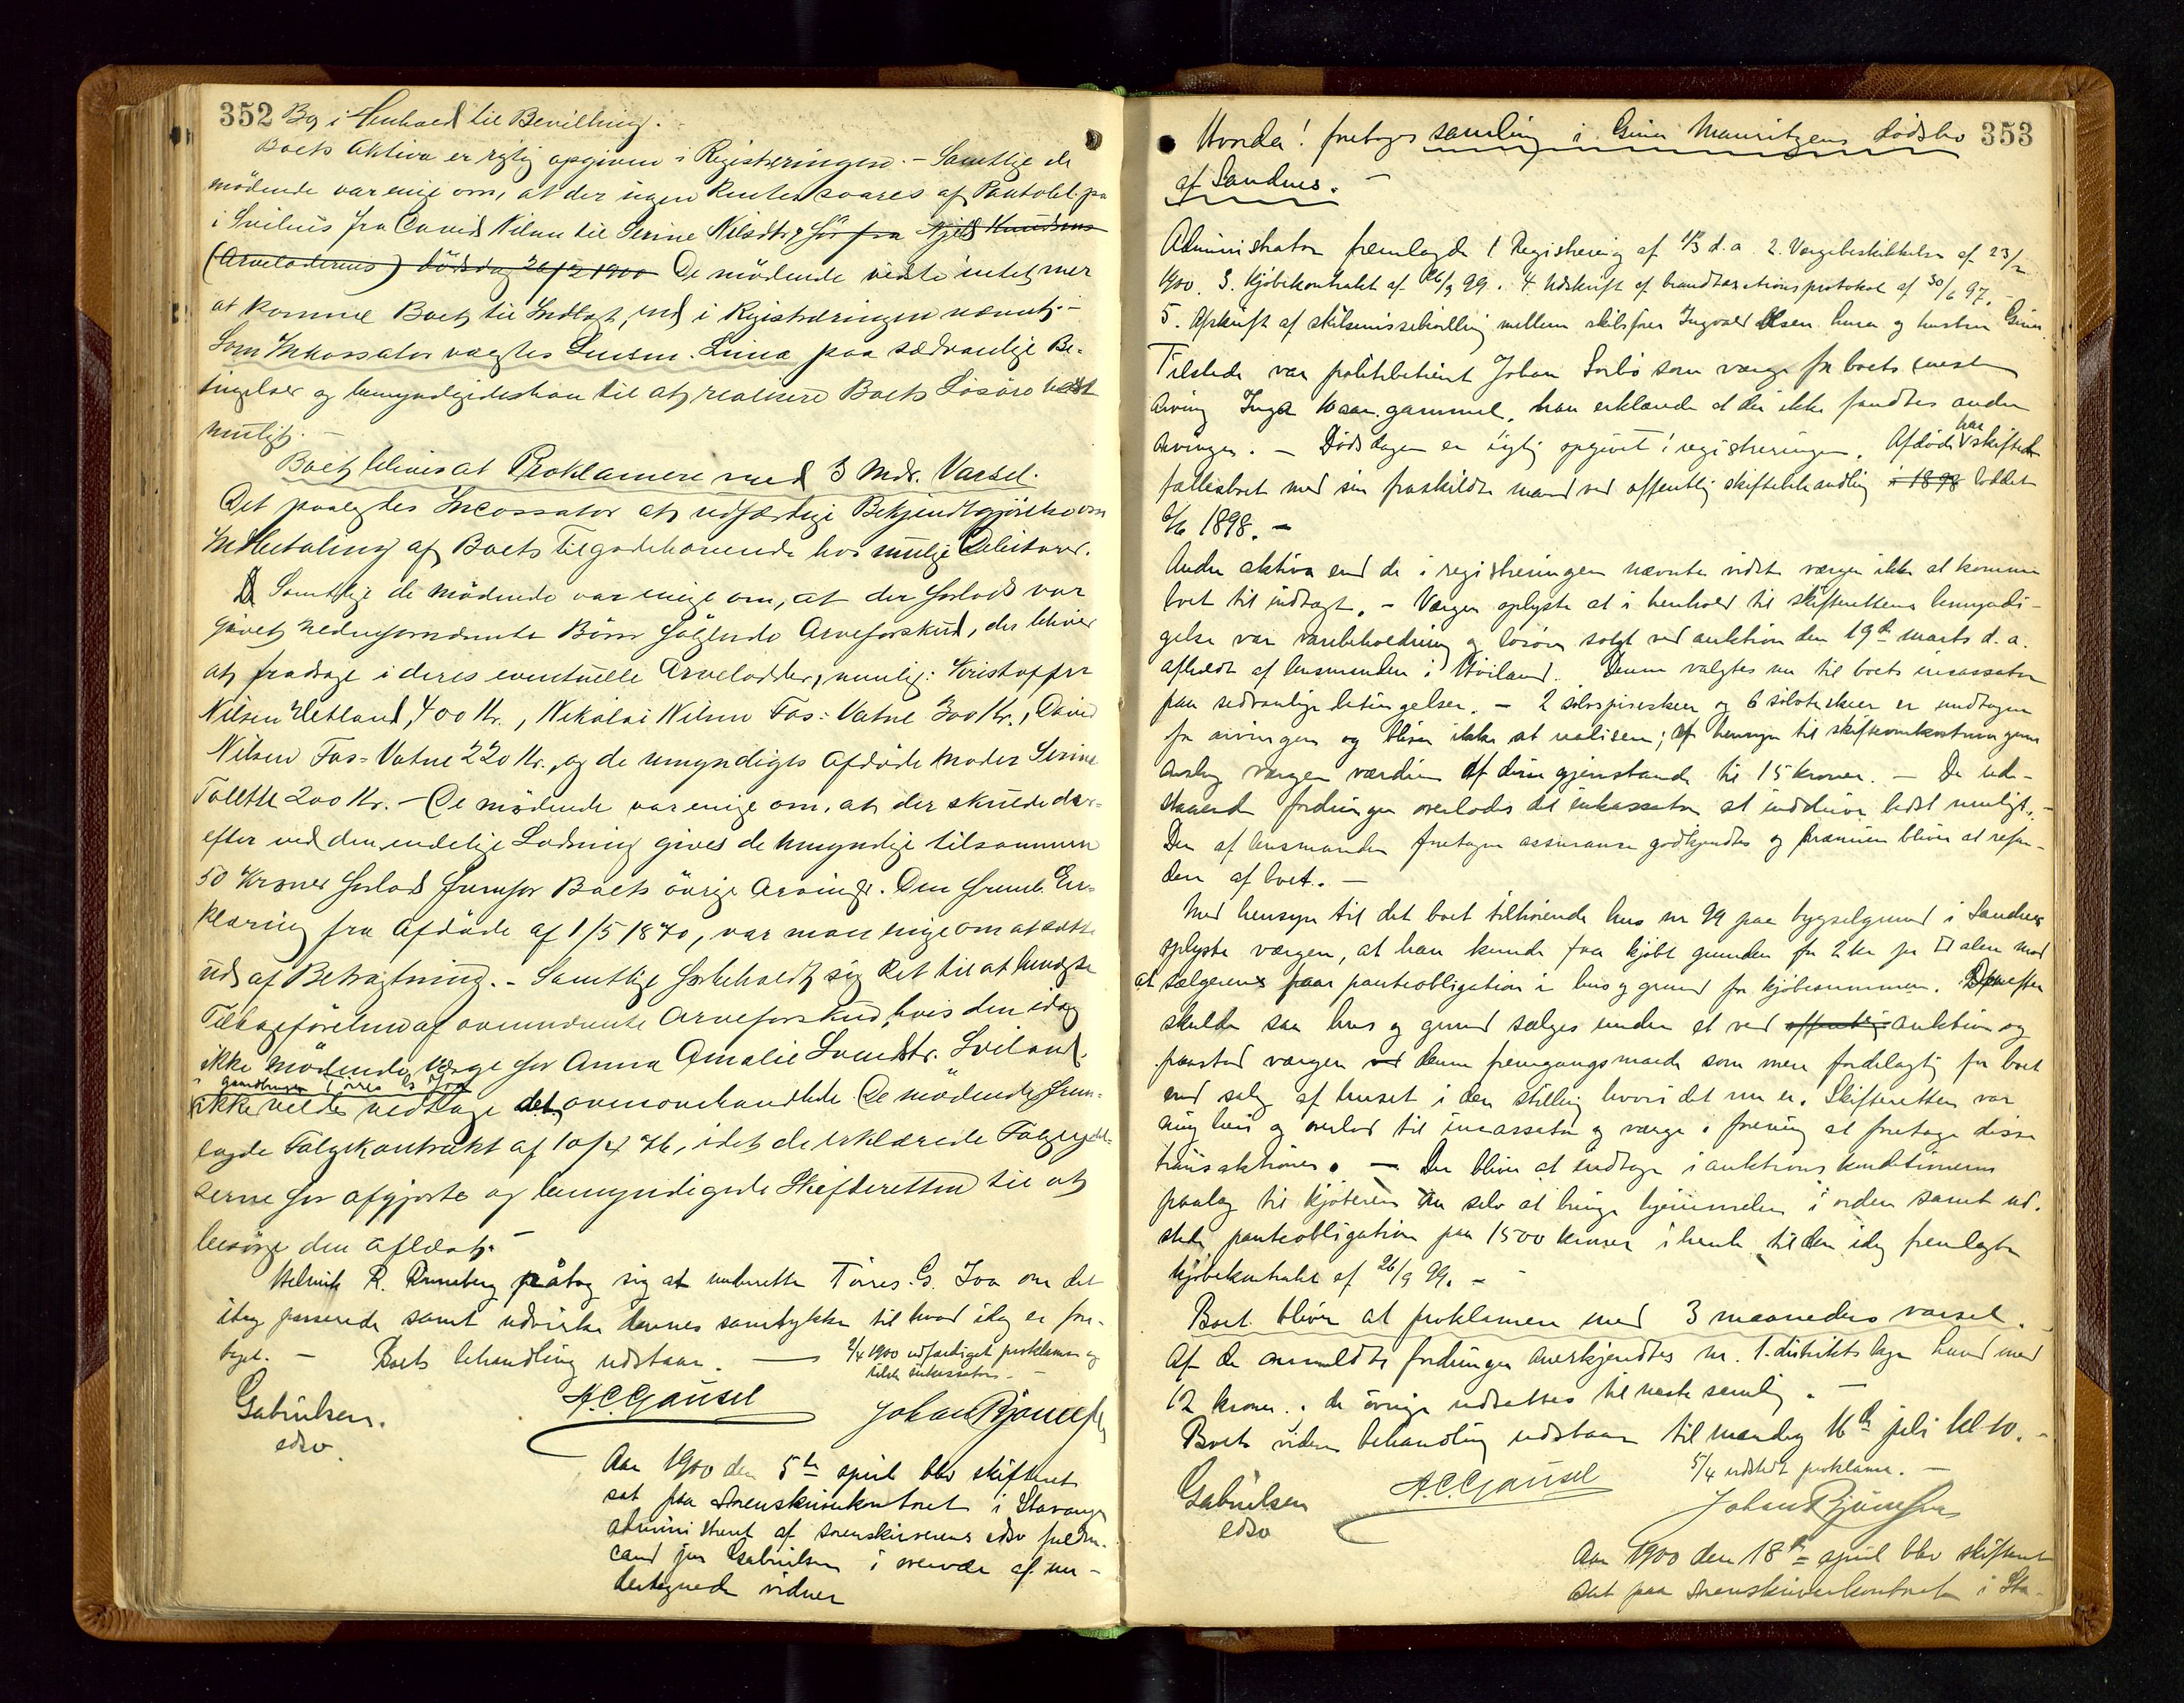 352 Bø i Henhold til Bevilling.
Boets Aktiva er rigtig opgiven i Registreringen. - Samtlige de
mödende var enige om, at der ingen Renter svares af Pantobl. paa
i Sviluus fra David Nilsen til Serine Nilsdtr. før fra Kjeld Knudsens
(Arveladerens) Dödsdag 26/2 1900 De mödende vidste intet mer
at komme Boet til Indtægt, end i Registreringen nævnt. -
Som Inkassator valgtes Lensm. Lima paa sædvanlige Be-
tingelser og bemyndigedes han til at realisere Boets Lösöre bedst
muligt. -
Boet bliver at Proklamere med 3 Mdr. Varsel.
Det paalagdes Incassator at udfærdige Bekjendtgjörelse om
Indbetaling af Boets Tilgodehavende hos mulige Debitorer.
Samtlige de mödende var enige om, at der forlods var
givet nedenfornævnte Börn fölgende Arveforskud, der bliver
at fradrage i deres eventuelle Arvelodder, nemlig: Kristoffer
Nilsen Hetland, 400 Kr., Nikolai Nilsen Fos-Vatne 300 Kr., David
Nilsen Fos-Vatne 220 Kr., og de umyndiges afdöde Moder Serine
Tollette 200 Kr. - De mödende var enige om, at der skulde der-
efter ved den endelige Lodning gives de umyndige tilsammen
50 Kroner forlods fremfor Boets övrige Arvinger. Den fremlagte Er-
klæring fra Afdöde af 1/5 1870, var man enige om at sætte
ud af Betragtning. - Samtlige forbeholdt sig Ret til at benægte
Tilbageförelsen af ovennævnte Arveforskud, hvis den idag
ikke mödende Værge for Anna Amalie Svendsdtr. Sviland
i gaardbruger Törres G. Joa
ikke vilde vedtage det ovenomhandlede. De mödende frem-
lagde Fölgekontrakt af 10/4 76, idet de erklærede Fölgeydel-
serne for afgjorte og bemyndigede Skifteretten til at
besörge den aflæst. -
Helmik R. Rønneberg påtog sig at underrette Tørres G. Joa om det
idag passerede samt udvirke dennes samtykke til hvad idag er fore-
taget. - Boets behandling udstaar. - 2/4 1900 udfærdiget proklama og
tilskr. inkassator. -
Gabrielsen. A.C. Gausel Johan Bjørnsen
edsv.
Aar 1900 den 5te april blev skifteret
sat paa sorenskriverkontoret i Stavanger
administreret af sorenskriverens edsv fuldm.
cand jur Gabrielsen i overvær af un-
dertegnede vidner
Hvorda! foretoges samling i Gina Mauritzens dødsbo 353
af Sandnes. -
Administrator fremlagde 1 Registrering af 1/3 d.a. 2. Værgebeskikkelse af 23/2
1900. 3. kjøbekontrakt af 26/9 99. 4. Udskrift af brandtaxationsprotokol af 30/6 97. -
5. Afskrift af skilsmissebevilling mellem skibsfører Ingvald Olsen Lura og hustru Gina
Tilstede var politibetjent Johan Sørbø som værge for boets eneste
Arving Inga 10 aar gammel, han erklærede at der ikke fandtes andre
arvinger. - Dødsdagen er rigtig opgivet i registreringen. Afdøde har skiftet
fællesboet med sin fraskildte mand ved offentlig skiftebehandling i 1898 loddet
6/6 1898. -
Andre aktiva end de i registreringen nævnte vidste værgen ikke at komme
boet til indtægt. - Værgen oplyste at i henhold til skifterettens bemyndi-
gelse var varebeholdning og løsøre solgt ved auktion den 19de marts d.a.
afholdt af lensmanden i Høiland. Denne valgtes nu til boets incassator
paa sedvanlige betingelser. - 2 sølvspiseskeer og 6 sølvteskeer er undtagen
for arvingen og bliver ikke at realisere; af hensyn til skifteomkostningerne
anslog værgen værdien af disse gjenstande til 15 kroner. - De ude-
staaende fordringer overlodes det inkassator at inddrive bedst muligt. -
Den af lensmanden foretagne assurance godkjendtes og præmien bliver at refun-
dere af boet. -
Med hensyn til det boet tilhørende hus nr 99 paa bygselgrund i Sandnes
oplyste værgen, at han kunde faa kjøbt grunden for 2 kr pr □ alen mod
at sælgeren faar panteobligation i hus og grund for kjøbesummen. Derefter
skulde saa hus og grund sælges under et ved offentlig auktion og
paastod værgen ved denne fremgangsmaade som mere fordelagtig for boet
end salg af huset i den stilling hvori det nu er. Skifteretten var
enig heri og overlod til incassator og værge i forening at foretage disse
transaktioner. - Der bliver at indtage i auktionskonditionerne
paalæg til kjøberen om selv at bringe hjemmelen i orden samt ud-
stede panteobligation paa 1500 kroner i henh. til den idag fremlagte
kjøbekontrakt af 26/9 99. -
Boet bliver at proklamere med 3 maaneders varsel.
Af de anmeldte fordringer anerkjendtes nr. 1. distriktslæge Lund med
12 kroner. de øvrige udsættes til næste samling. -
Boets videre behandling udstaar til mandag 16de juli kl 10. -
5/4 udstedt proklama. -
Gabrielsen A.C. Gausel Johan Bjørnsen
edsv
Aar 1900 den 18de april blev skifteret
sat paa sorenskriverkontoret i Sta-